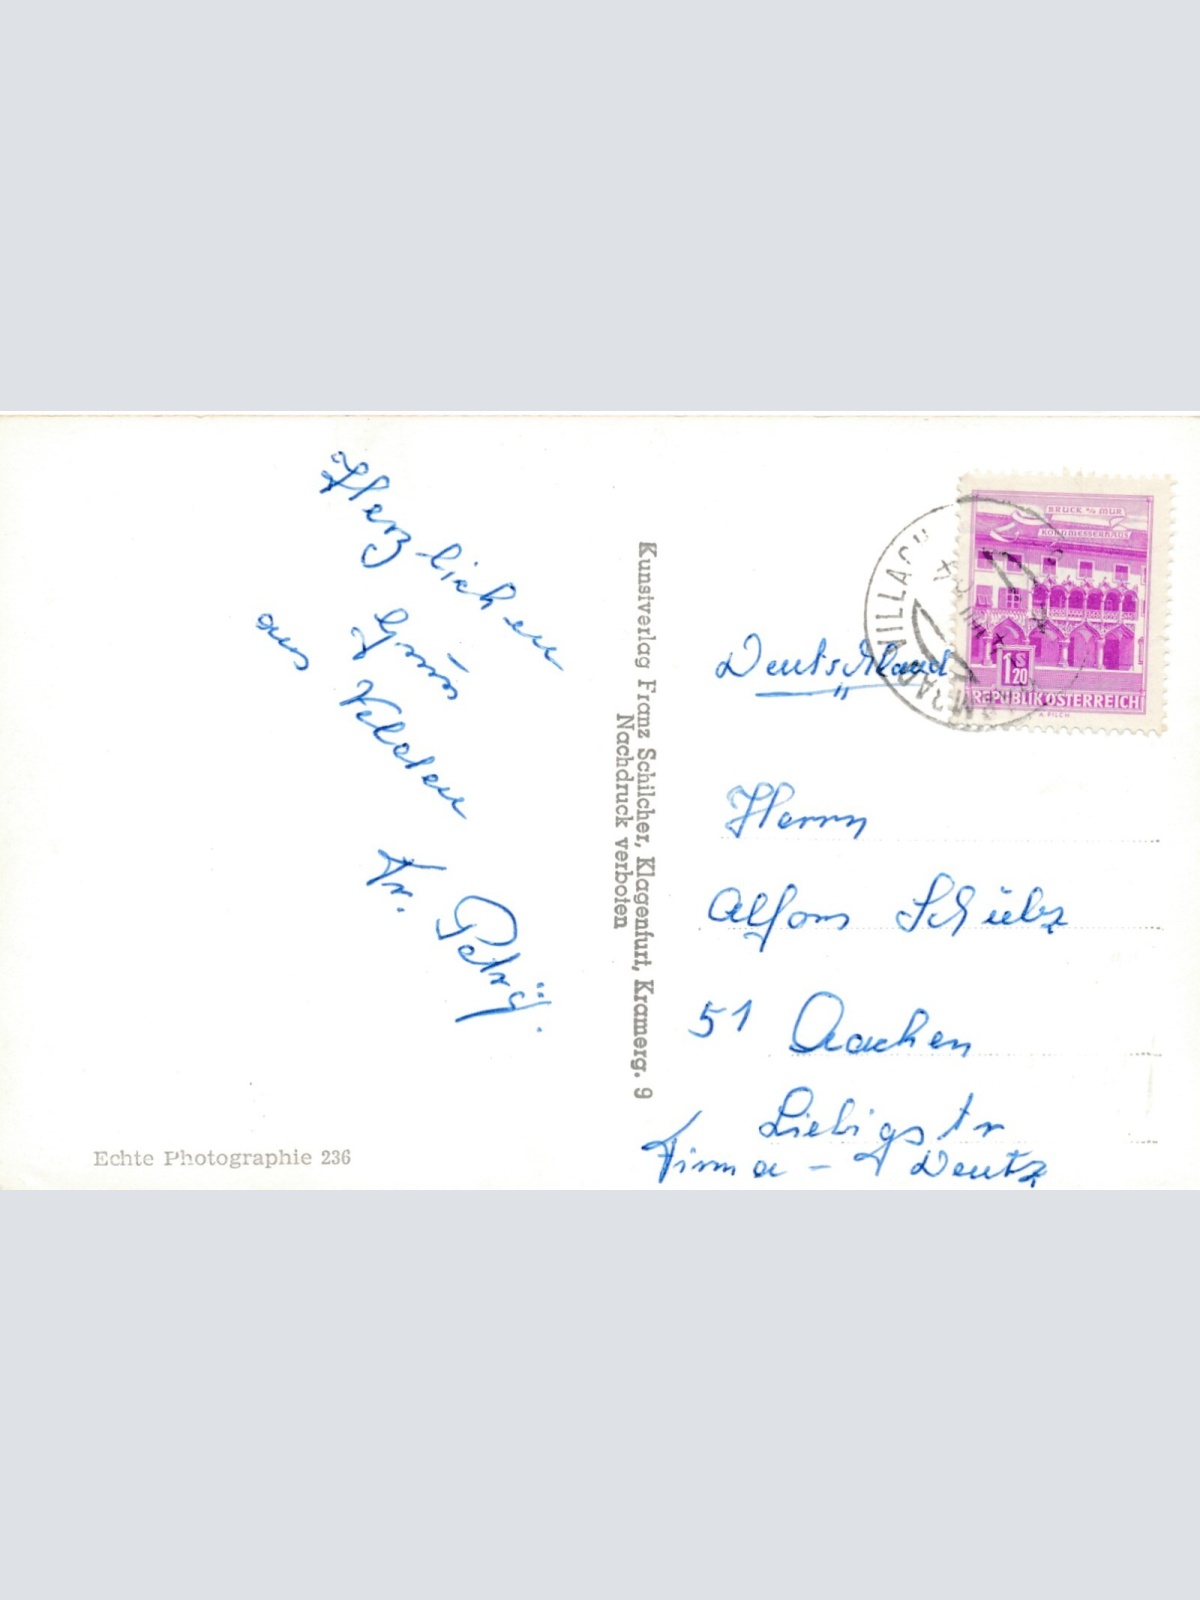 Herzlichen
Gruss
aus Velden
Fr.
Echte Photographie 236
Kunstverlag Franz Schilcher, Klagenfurt, Kramerg. 9
Nachdruck verboten
BRUCK a/d MUR
KORNMESSERHAUS
1 20
REPUBLIK ÖSTERREICH
A. PILCH
VILLACH
Deutschland
Herrn
Alfons
51 Aachen
Liebigstr
Firma - Deutz